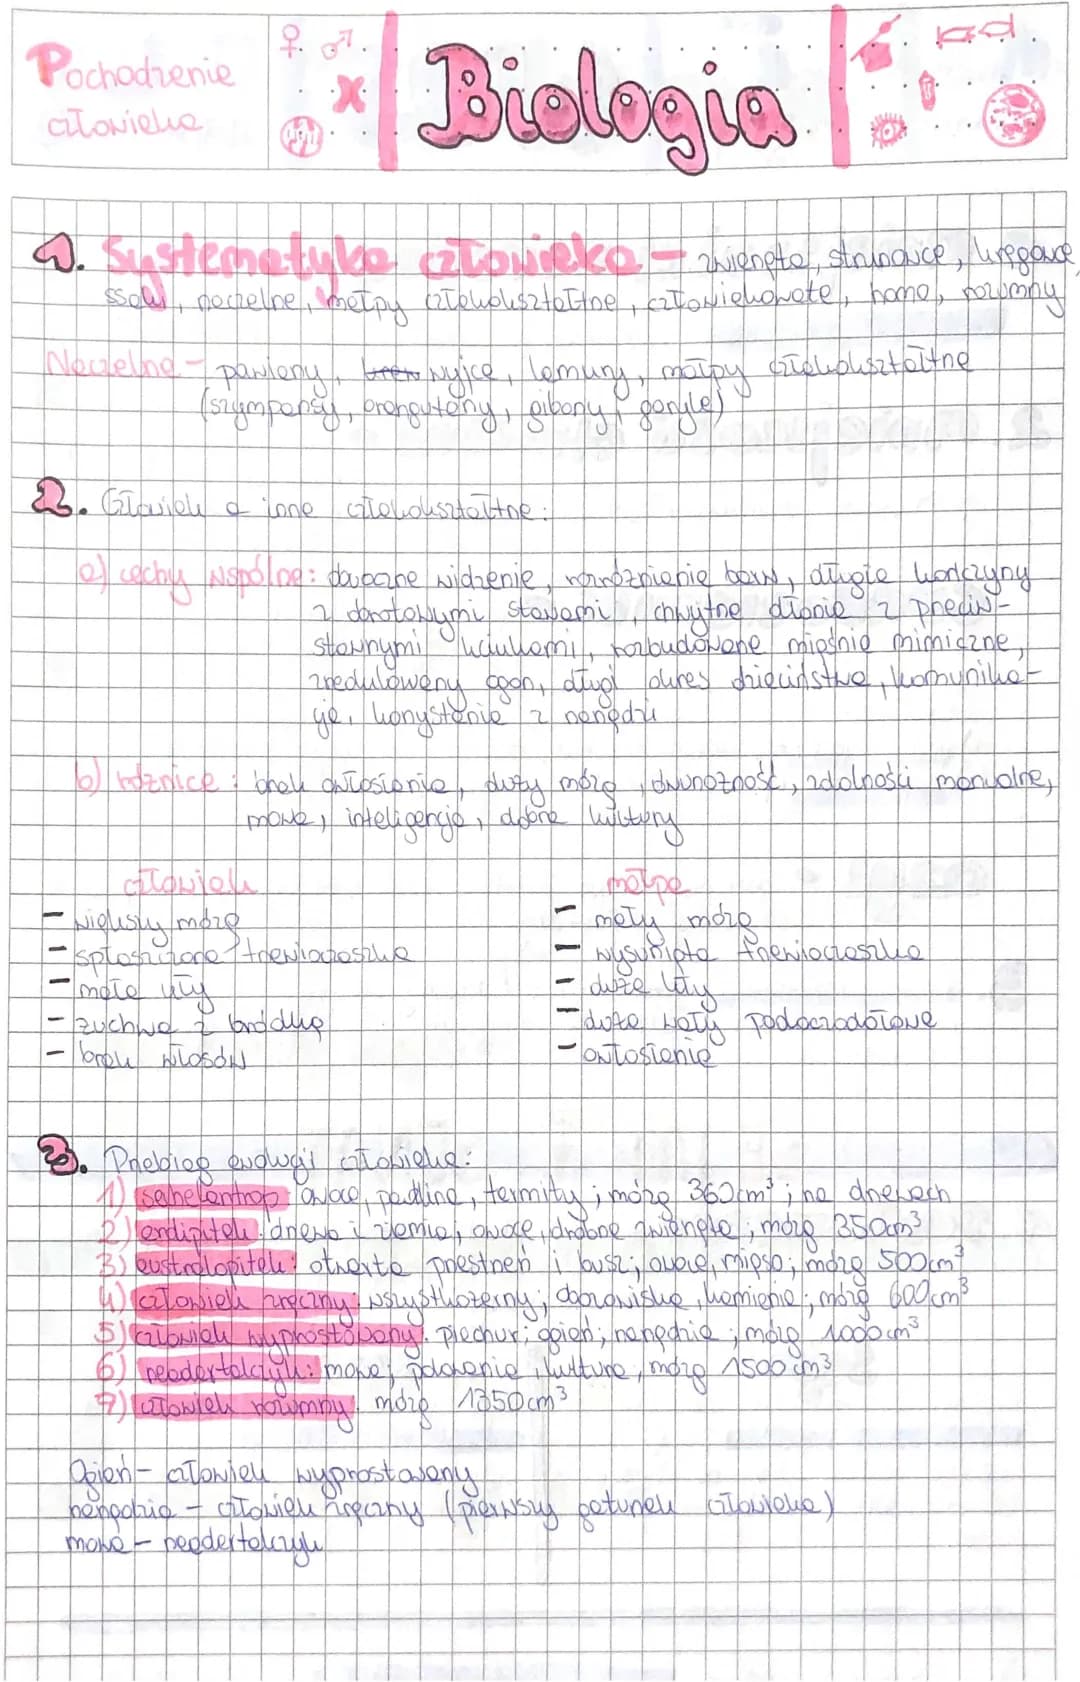 Pochodzenie
człowieka
Biologia
1. Systematyka człowieka - zwierzęta, strunowce, kręgowce,
ssaki, naczelne, małpy człekokształtne, człowiekowate, homo, rozumny
Naczelne - pawiany, wyjce, lemury, małpy człekokształtne
(szympansy, orangutany, gibony, goryle)
2. Człowiek a inne człekokształtne:
a) cechy wspólne: dwuoczne widzenie, rozróżnienie barw, długie kończyny
z obrotowymi stawami, chwytne dłonie z przeciw-
stawnymi kciukami, rozbudowane mięśnie mimiczne,
zredukowany ogon, długi okres dzieciństwa, komunika-
cja, korzystanie z narzędzi
b) różnice: brak owłosienia, duży mózg, dwunożność, zdolności manualne,
mowa, inteligencja, dobra kultury
człowiek
- większy mózg
- spłaszczona trzewioczaszka
- małe kły
- żuchwa z bródką
- brak włosów
małpa
- mały mózg
- wysunięta trzewioczaszka
- duże kły
- duże wały podoczodołowe
- owłosienie
3. Przebieg ewolucji człowieka:
1) sahelantrop: owoce, padlina, termity; mózg 360cm³; na drzewach
2) ardipitek: drzewa i ziemia; owoce, drobne zwierzęta; mózg 350cm³
3) australopitek: otwarta przestrzeń i busz; owoce, mięso; mózg 500cm³
4) człowiek zręczny: wszystkożerny; obozowiska, kamienie; mózg 600cm³
5) człowiek wyprostowany: piechur; ogień; narzędzia; mózg 1000cm³
6) neadertalczyk: mowa, polowania, kultura, mózg 1500cm³
7) człowiek rozumny: mózg 1350cm³
Ogień - człowiek wyprostowany
narzędzia - człowiek zręczny (pierwszy gatunek człowieka)
mowa - neadertalczyk